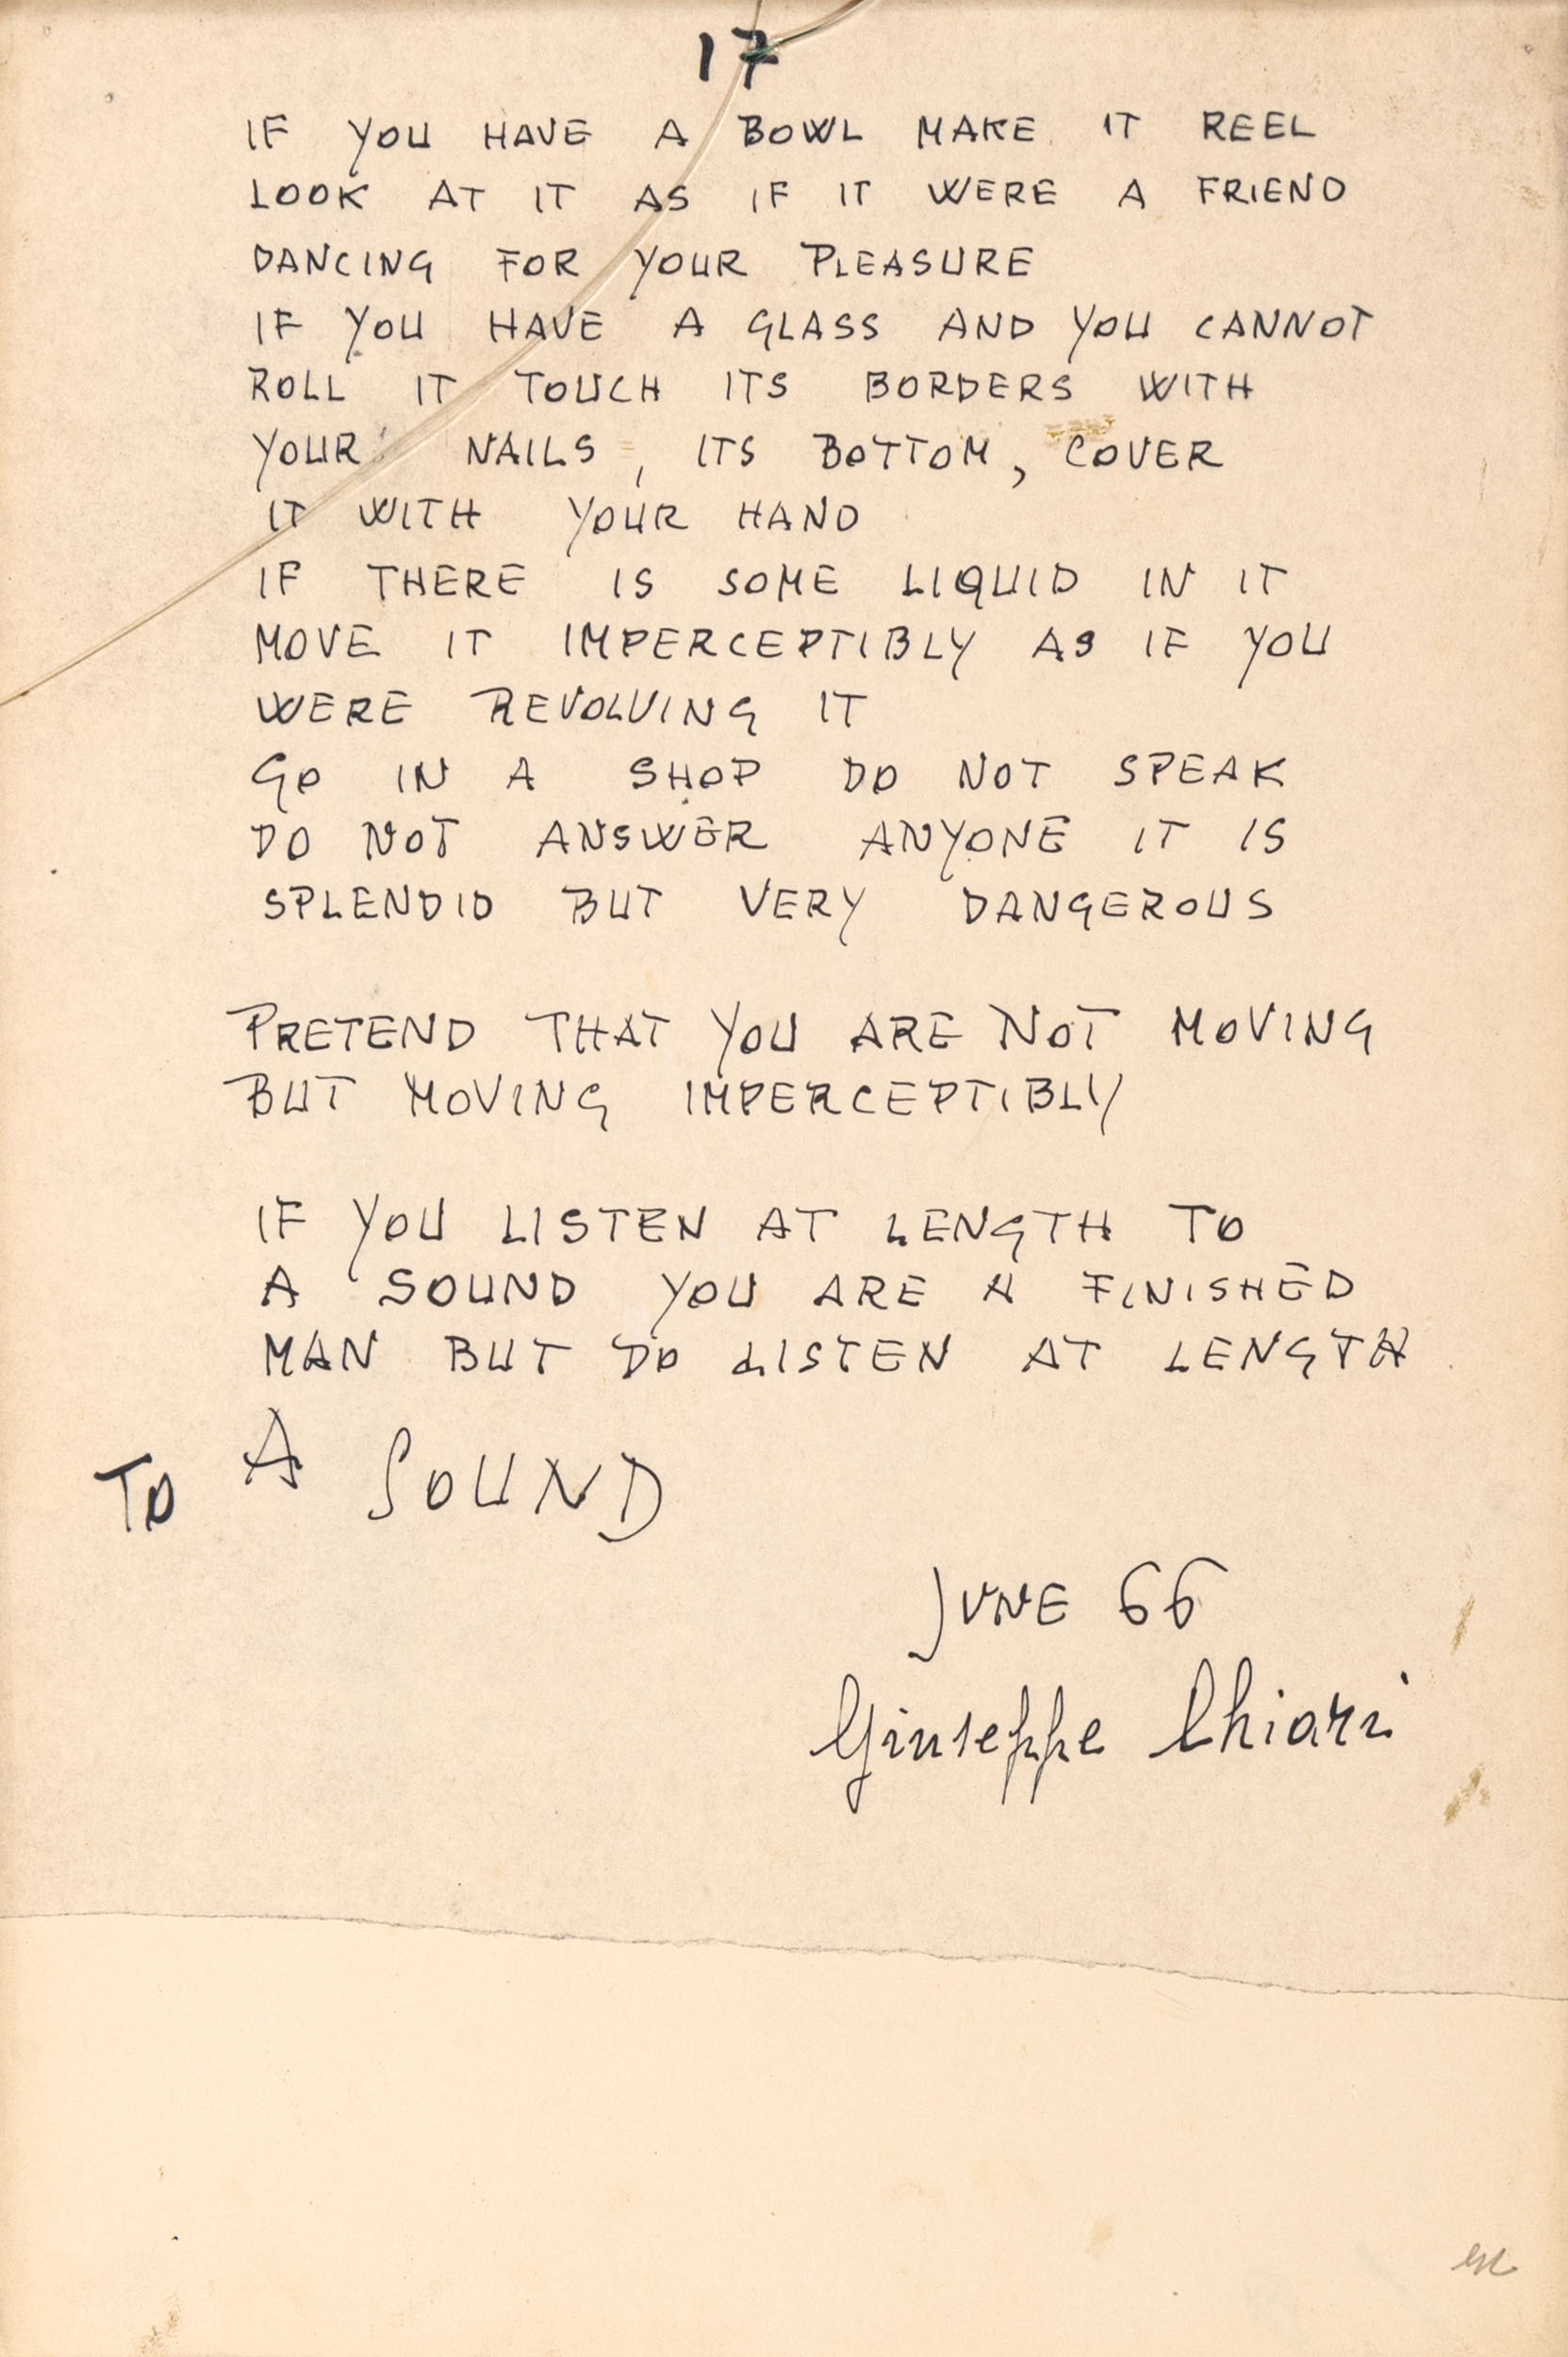 17
IF YOU HAVE A BOWL MAKE IT REEL
LOOK AT IT AS IF IT WERE A FRIEND
DANCING FOR YOUR PLEASURE
IF YOU HAVE A GLASS AND YOU CANNOT
ROLL IT TOUCH ITS BORDERS WITH
YOUR NAILS, ITS BOTTOM, COVER
IT WITH YOUR HAND
IF THERE IS SOME LIQUID IN IT
MOVE IT IMPERCEPTIBLY AS IF YOU
WERE REVOLVING IT
GO IN A SHOP DO NOT SPEAK
DO NOT ANSWER ANYONE IT IS
SPLENDID BUT VERY DANGEROUS
PRETEND THAT YOU ARE NOT MOVING
BUT MOVING IMPERCEPTIBLY
IF YOU LISTEN AT LENGTH TO
A SOUND YOU ARE A FINISHED
MAN BUT DO LISTEN AT LENGTH
TO A SOUND
JUNE 66
Giuseppe Chiari